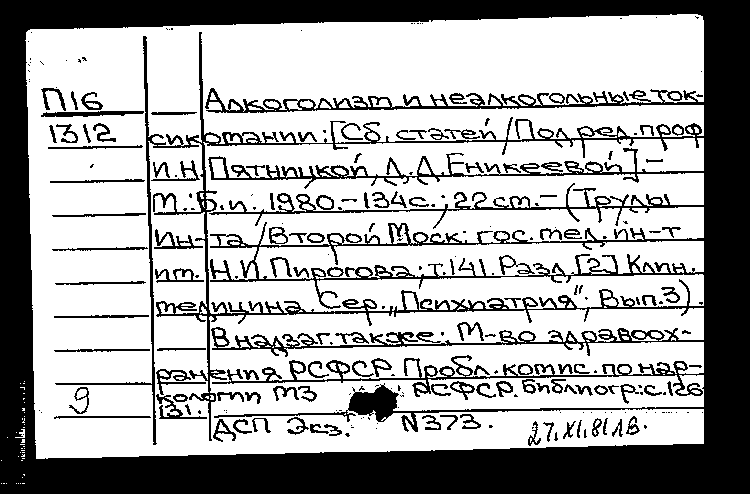 П16 Алкоголизм и неалкогольные ток-
1312 сикомании: [Сб. статей / Под ред. проф
И.Н. Пятницкой, Д.Д. Еникеевой]. –
М.: Б.и., 1980. – 134с.; 22 см. – (Труды
Ин-та / Второй Моск. гос. мед. ин-т
им. Н.И. Пирогова; т.141. Разд. [2] Клин.
медицина. Сер. „Психиатрия"; Вып.3).
В надзаг. также: М-во здравоох-
ранения РСФСР. Пробл. комис. по нар-
9 кологии МЗ РСФСР. Библиогр.: с.126
131.
ДСП Экз. N373. 27.XI.81